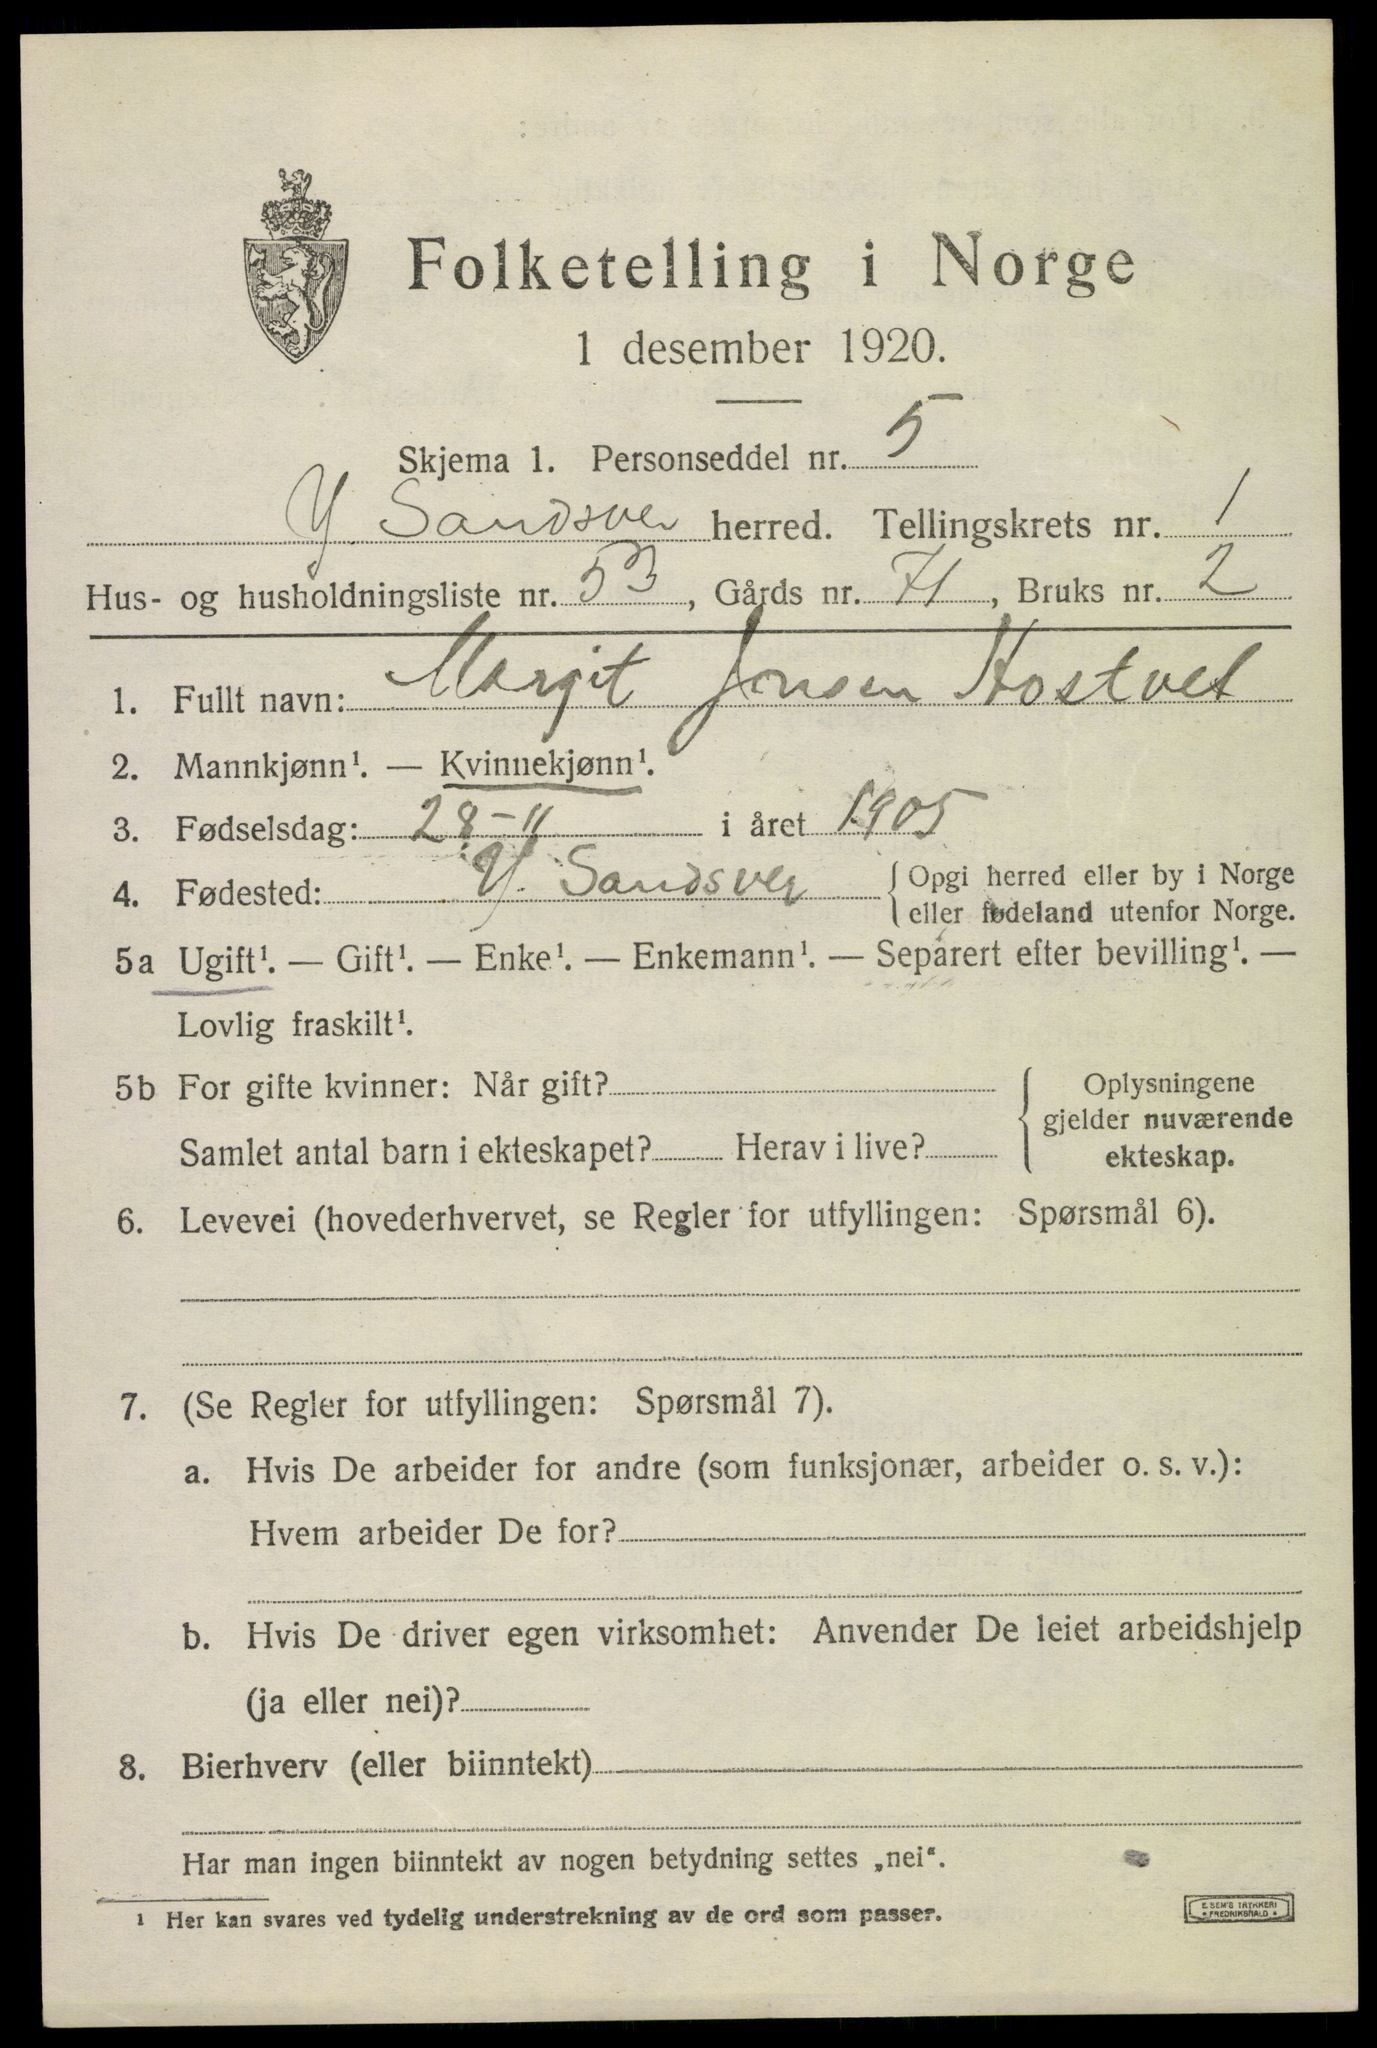 Folketelling i Norge
1 desember 1920.
Skjema 1. Personseddel nr. 5
Y. Sandsver herred. Tellingskrets nr. 1
Hus- og husholdningsliste nr. 53, Gårds nr. 71, Bruks nr. 2
1. Fullt navn: Margit Jonsen Hostvet
2. Mannkjønn¹. — Kvinnekjønn¹.
3. Fødselsdag: 28-11 i året 1905
4. Fødested: Y. Sandsver { Opgi herred eller by i Norge
eller fødeland utenfor Norge.
5a Ugift¹. — Gift¹. — Enke¹. — Enkemann¹. — Separert efter bevilling¹. —
Lovlig fraskilt¹.
5b For gifte kvinner: Når gift? { Oplysningene
gjelder nuværende
Samlet antal barn i ekteskapet? Herav i live? ekteskap.
6. Levevei (hovederhvervet, se Regler for utfyllingen: Spørsmål 6).
7. (Se Regler for utfyllingen: Spørsmål 7).
a. Hvis De arbeider for andre (som funksjonær, arbeider o. s. v.):
Hvem arbeider De for?
b. Hvis De driver egen virksomhet: Anvender De leiet arbeidshjelp
(ja eller nei)?
8. Bierhverv (eller biinntekt)
Har man ingen biinntekt av nogen betydning settes „nei“.
¹ Her kan svares ved tydelig understrekning av de ord som passer.
E. SEM'S TRYKKERI
* FREDRIKSHALD *